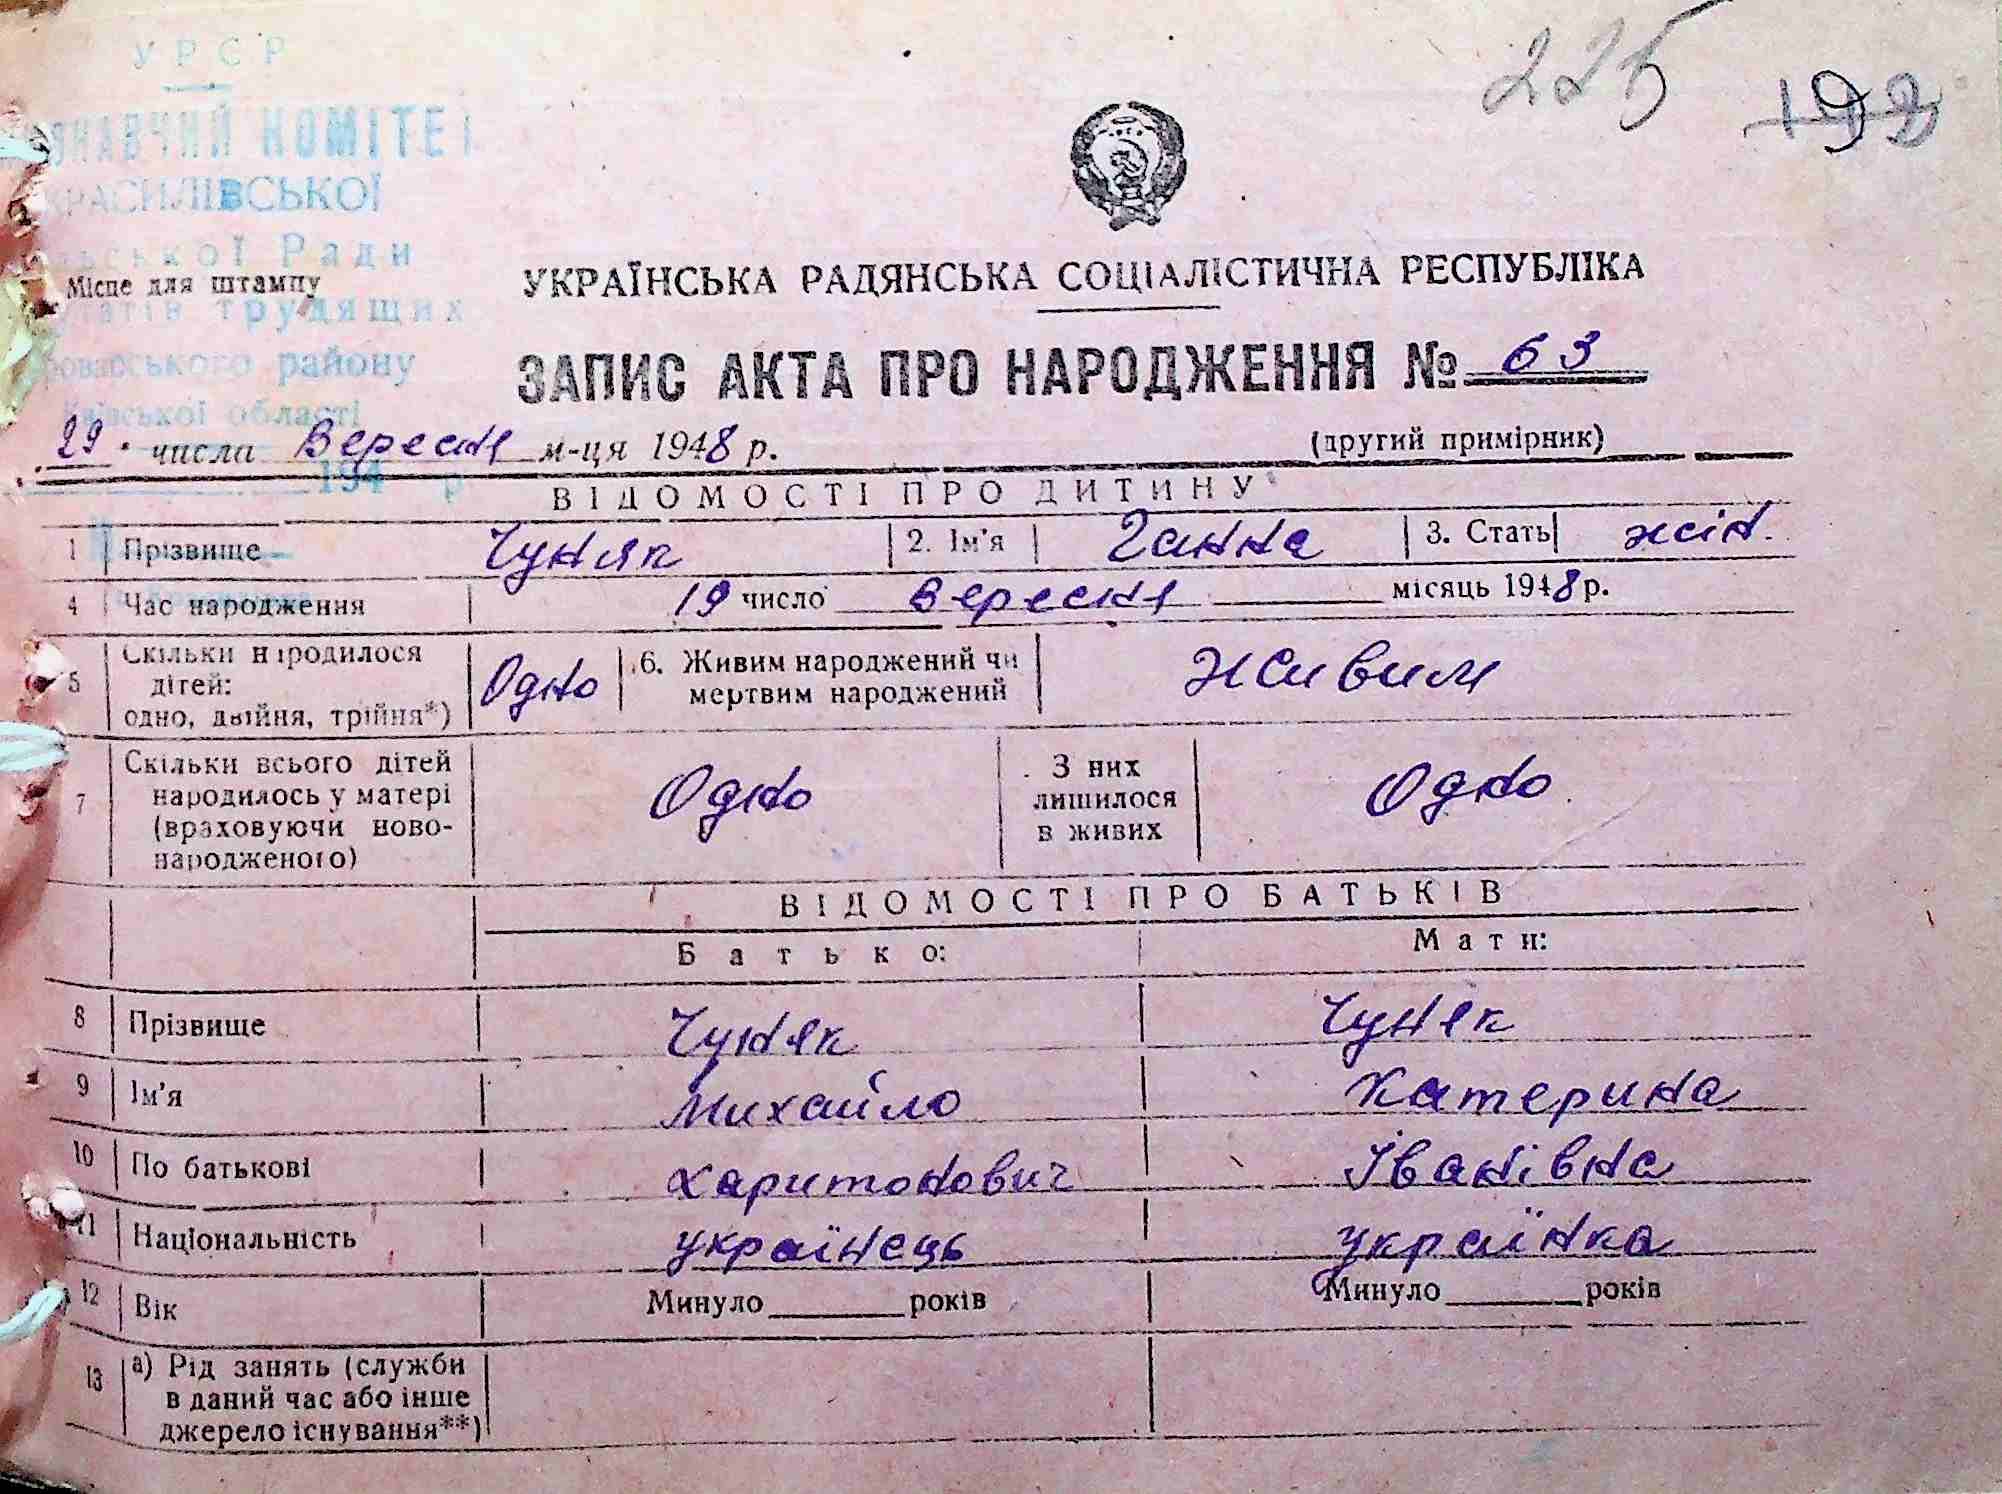 УРСР
КОМІТЕТ
КРАСИЛІВСЬКОЇ
Ради
Місце для штампу
трудящих
району
Київської області
194 р
225
198
УКРАЇНСЬКА РАДЯНСЬКА СОЦІАЛІСТИЧНА РЕСПУБЛІКА
ЗАПИС АКТА ПРО НАРОДЖЕННЯ № 63
29. числа Вересня м-ця 1948 р. (другий примірник)
ВІДОМОСТІ ПРО ДИТИНУ
1 Прізвище Чуняк 2. Ім'я Ганна 3. Стать жін.
4 Час народження 19 число Вересня місяць 1948 р.
5 Скільки народилося дітей: одно, двійня, трійня*) Одно 6. Живим народжений чи мертвим народжений Живим
7 Скільки всього дітей народилось у матері (враховуючи новонародженого) Одно З них лишилося в живих Одно
ВІДОМОСТІ ПРО БАТЬКІВ
Батько: Мати:
8 Прізвище Чуняк Чуняк
9 Ім'я Михайло Катерина
10 По батькові Харитонович Іванівна
11 Національність українець українка
12 Вік Минуло років Минуло років
13 а) Рід занять (служби
в даний час або інше
джерело існування**)